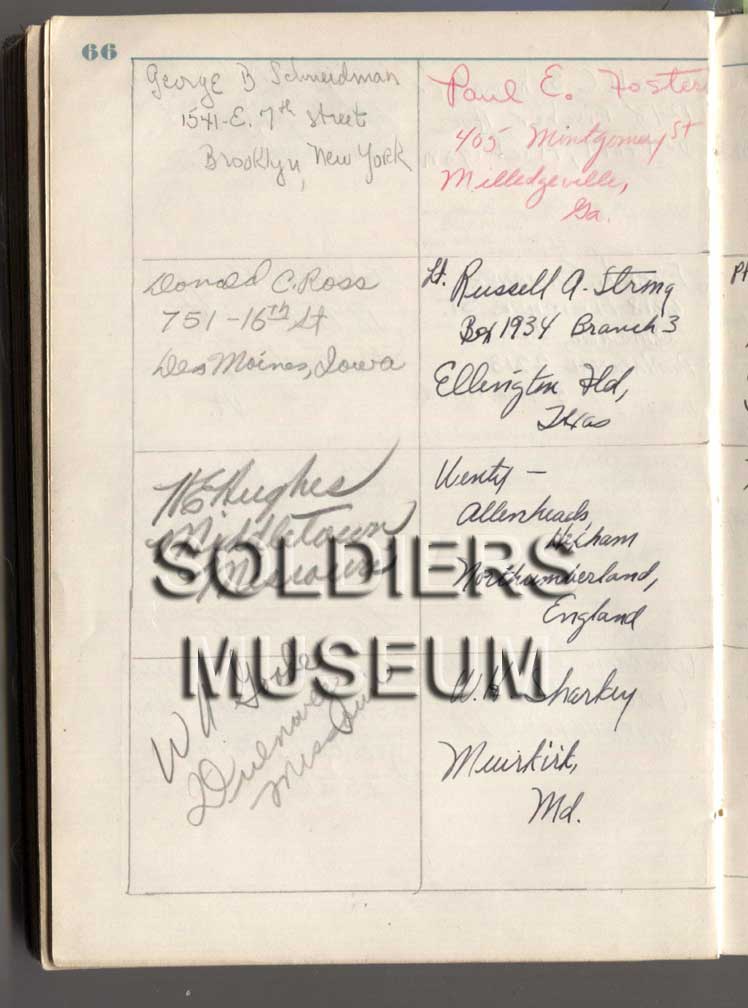 66
George B Schneidman
1541-E. 7th Street
Brooklyn, New York
Paul E. Foster
405 Montgomery St
Milledgeville,
Ga.
Donald C. Ross
751-16th St
Des Moines, Iowa
Lt. Russell A. Strong
Box 1934 Branch 3
Ellington Fld,
Texas
HE Hughes
Middletown
Missouri
Allenheads,
Hexham
Northumberland,
England
SOLDIERS
MUSEUM
W
Missouri
W. H Sharkey
Muirkirk,
Md.